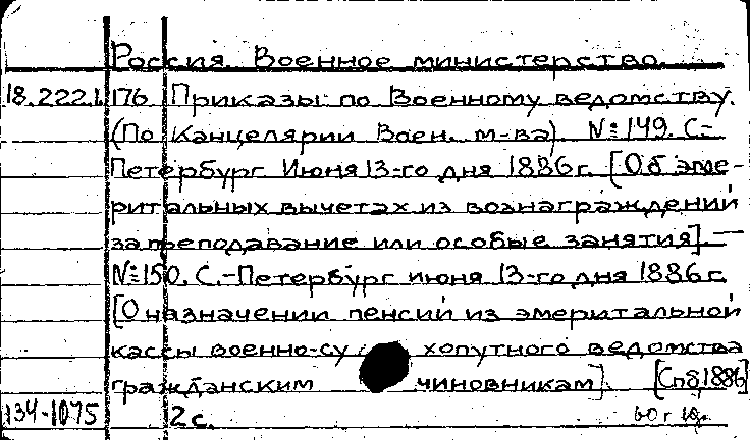 Россия. Военное министерство.
18.222.1.176 Приказы по Военному ведомству.
(По Канцелярии Воен. м-ва). № 149. С.-
Петербург Июня 13-го дня 1886 г. [Об эме-
ритальных вычетах из вознаграждений
за преподавание или особые занятия]. —
№ 150. С.-Петербург июня 13-го дня 1886 г.
[О назначении пенсий из эмеритальной
кассы военно-сухопутного ведомства
гражданским чиновникам]. [Спб, 1886]
134-1075 2 с.